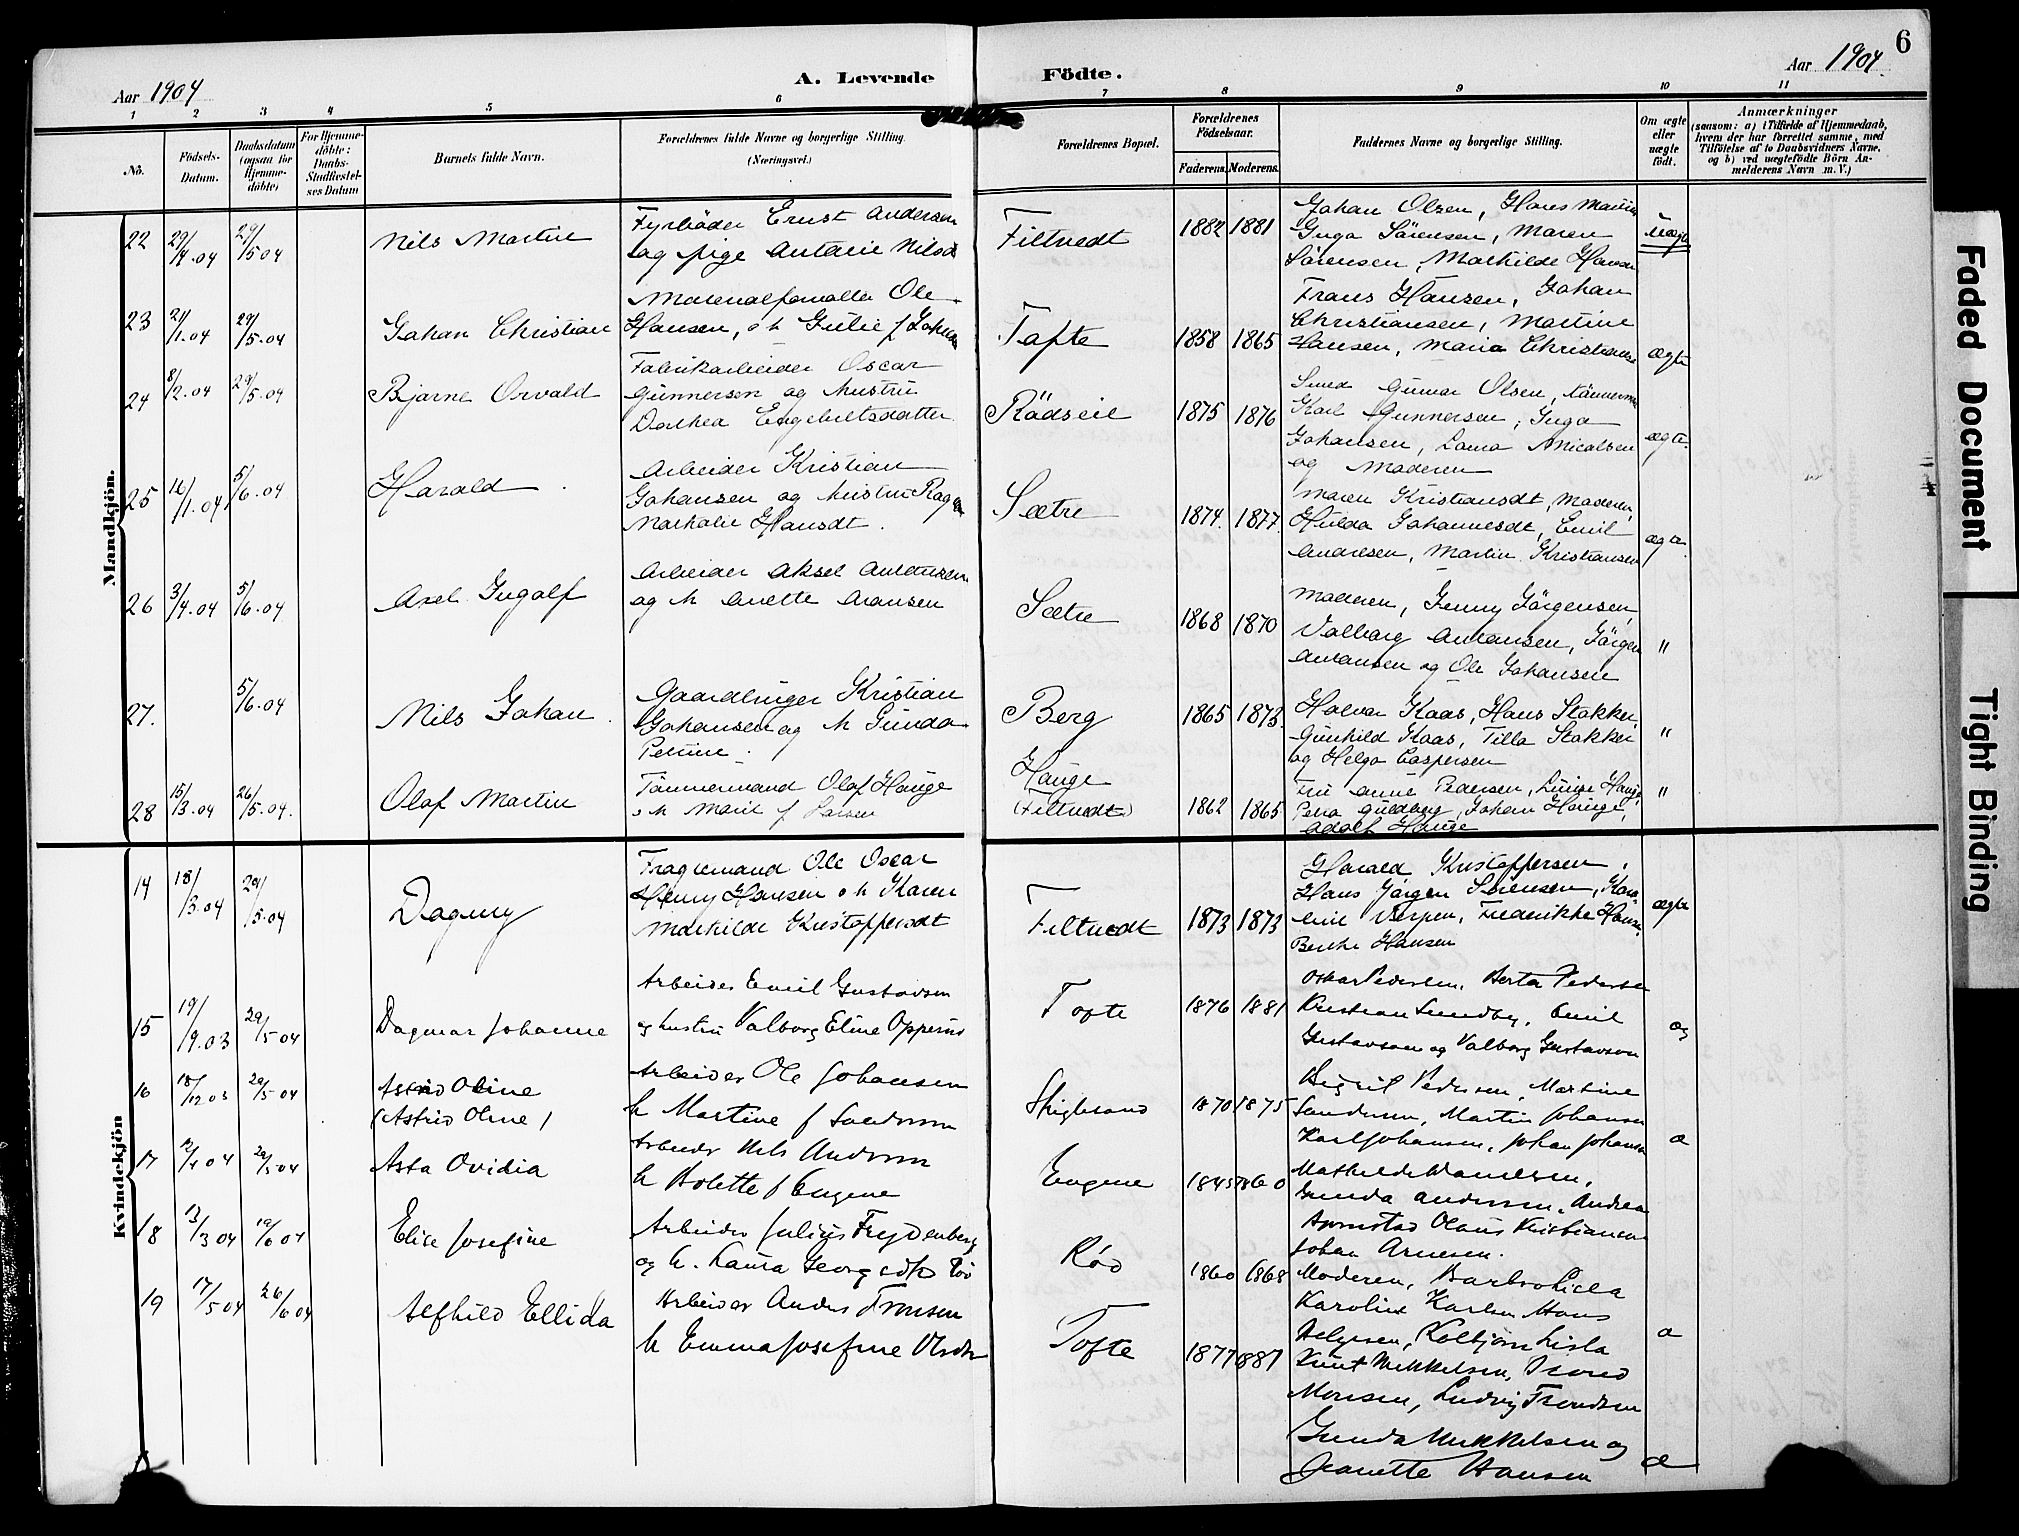 6
Aar 1904
A. Levende
Födte.
Aar 1904
1 2 3 4 5 6 7 8 9 10 11
No.
Födsels-
Datum.
Daabsdatum
(ogsaa for
Hjemme-
döbte)
For Hjemme-
döbte:
Daabs-
Stadfæstel-
ses Datum
Barnets fulde Navn.
Forældrenes fulde Navne og borgerlige Stilling.
(Næringsvei.)
Forældrenes Bopæl.
Forældrenes
Födselsaar.
Faderens. Moderens.
Faddernes Navne og borgerlige Stilling.
Om ægte
eller
uægte
født.
Anmærkninger
(saasom: a) i Tilfælde af Hjemmedaab,
hvem der har forrettet samme, med
Tilföielse af to Daabsvidners Navne,
og b) ved uægtefödte Börn An-
melderens Navn m. V.)
Mandkjön.
22 29/4.04 29/5 04 Nils Martin
Fyrböder Ernst Andersen
og pige Antanie Nilsd
Filtvedt 1882 1881
Johan Olsen, Hans
Inga Sörensen, Maren
Sörensen, Mathilde Hansen
uægte
23 21/1.04 29/5.04 Johan Christian
Materialforvalter Ole
Hansen, o h Julie f Johans
Tofte 1858 1865
Frans Hansen, Johan
Christiansen, Martine
Hansen, Maria Christianse
ægte
24 8/2.04 29/5.04 Bjarne Osvald
Fabrikarbeider Oscar
Gunnersen og hustru
Dorthea Engebretsdatter
Rödseil 1875 1876
Smed Gunnar Olsen, tömmerm
Karl Gunnersen, Inga
Johansen, Laura Micalsen
og Moderen
ægte.
25 16/1.04 5/6.04 Harald
Arbeider Kristian
Johansen og hustru Ragna
Nathalie Hansdt.
Sætre 1874. 1877.
Maren Kristiansdt, Moderen,
Hulda Johannesdt, Emil
Andresen, Martin Kristiansen
ægte.
26 3/4.04 5/6.04 Axel Ingolf
Arbeider Aksel Antansen
og h Anette Aronsen
Sætre 1868 1870
Moderen, Jenny Jörgensen,
Valborg Antansen, Jörgen
Antansen og Ole Johansen
"
27. 5/6.04 Nils Johan
Gaardbruger Kristian
Johansen og h Gunda
Petrine.
Berg 1865 1873
Halvor Kaas, Hans Stokker,
Gunhild Kaas, Tilla Stokker
og Helga Caspersen
"
28 15/3.04 26/5.04. Olaf Martin
Tömmermand Olaf Hauge
o h Marie f Larsen
Hauge
(Filtvedt) 1862 1865
Fru Anne Pedersen, Louise Hauge,
Petra Guldberg, Johan Hauge,
Adolf Hauge
"
Kvindekjön
14 18/3.04 29/5.04 Dagny
Fragtemand Ole Oscar
Henry Hansen o h Karen
Mathilde Kristoffersdt
Filtvedt 1873 1873
Harald Kristoffersen,
Hans Jörgen Sörensen, Karo-
line Vespen, Frederikke Hans.
Berthe Hansen
ægte
15 19/9.03 29/5 04 Dagmar Johanne
Arbeider Emil Gustavsen
og hustru Valborg Eline
Tofte 1876 1881
Oskar Pedersen, Berta Pedersen
Kristian Sundby, Emil
Gustavson og Valborg Gustavson
æg
16 18/12 03 29/5 04 Astrid Oline
(Astrid Oline)
Arbeider Ole Johansen
h Martine f Sandersen
1870 1875
Sigrid Pedersen, Martine
Sandersen, Martin Johansen
Karl Johansen, Johan Johansen
æ
17 12/4 04 29/5 04 Asta Ovidia
Arbeider Nils Andersen
h Bolette f Engene
Engene 1845 1860
Mathilde Danielsen,
Gunda Andersen, Andrea
Olaus Kristiansen
Johan Arnesen.
18 13/3 04 19/6 04 Elise Josefine
Arbeider Julius Frydenberg
og h. Laura Georgsdtr
Rød 1860 1868
Moderen, Barbro Lilla
Karoline Karlsen Hans
Helgesen, Kolbjørn
æ
19 17/5 04 26/6 04 Alfhild Ellida
Arbeider Anders Tronsen
h Emma Josefine Olsdtr
Tofte 1877 1881
Knut Mikkelsen, Trond
Monsen, Ludvig Trondsen
Gunda Mikkelsen og
Jeanette Hansen
æ
Faded Document
Tight Binding